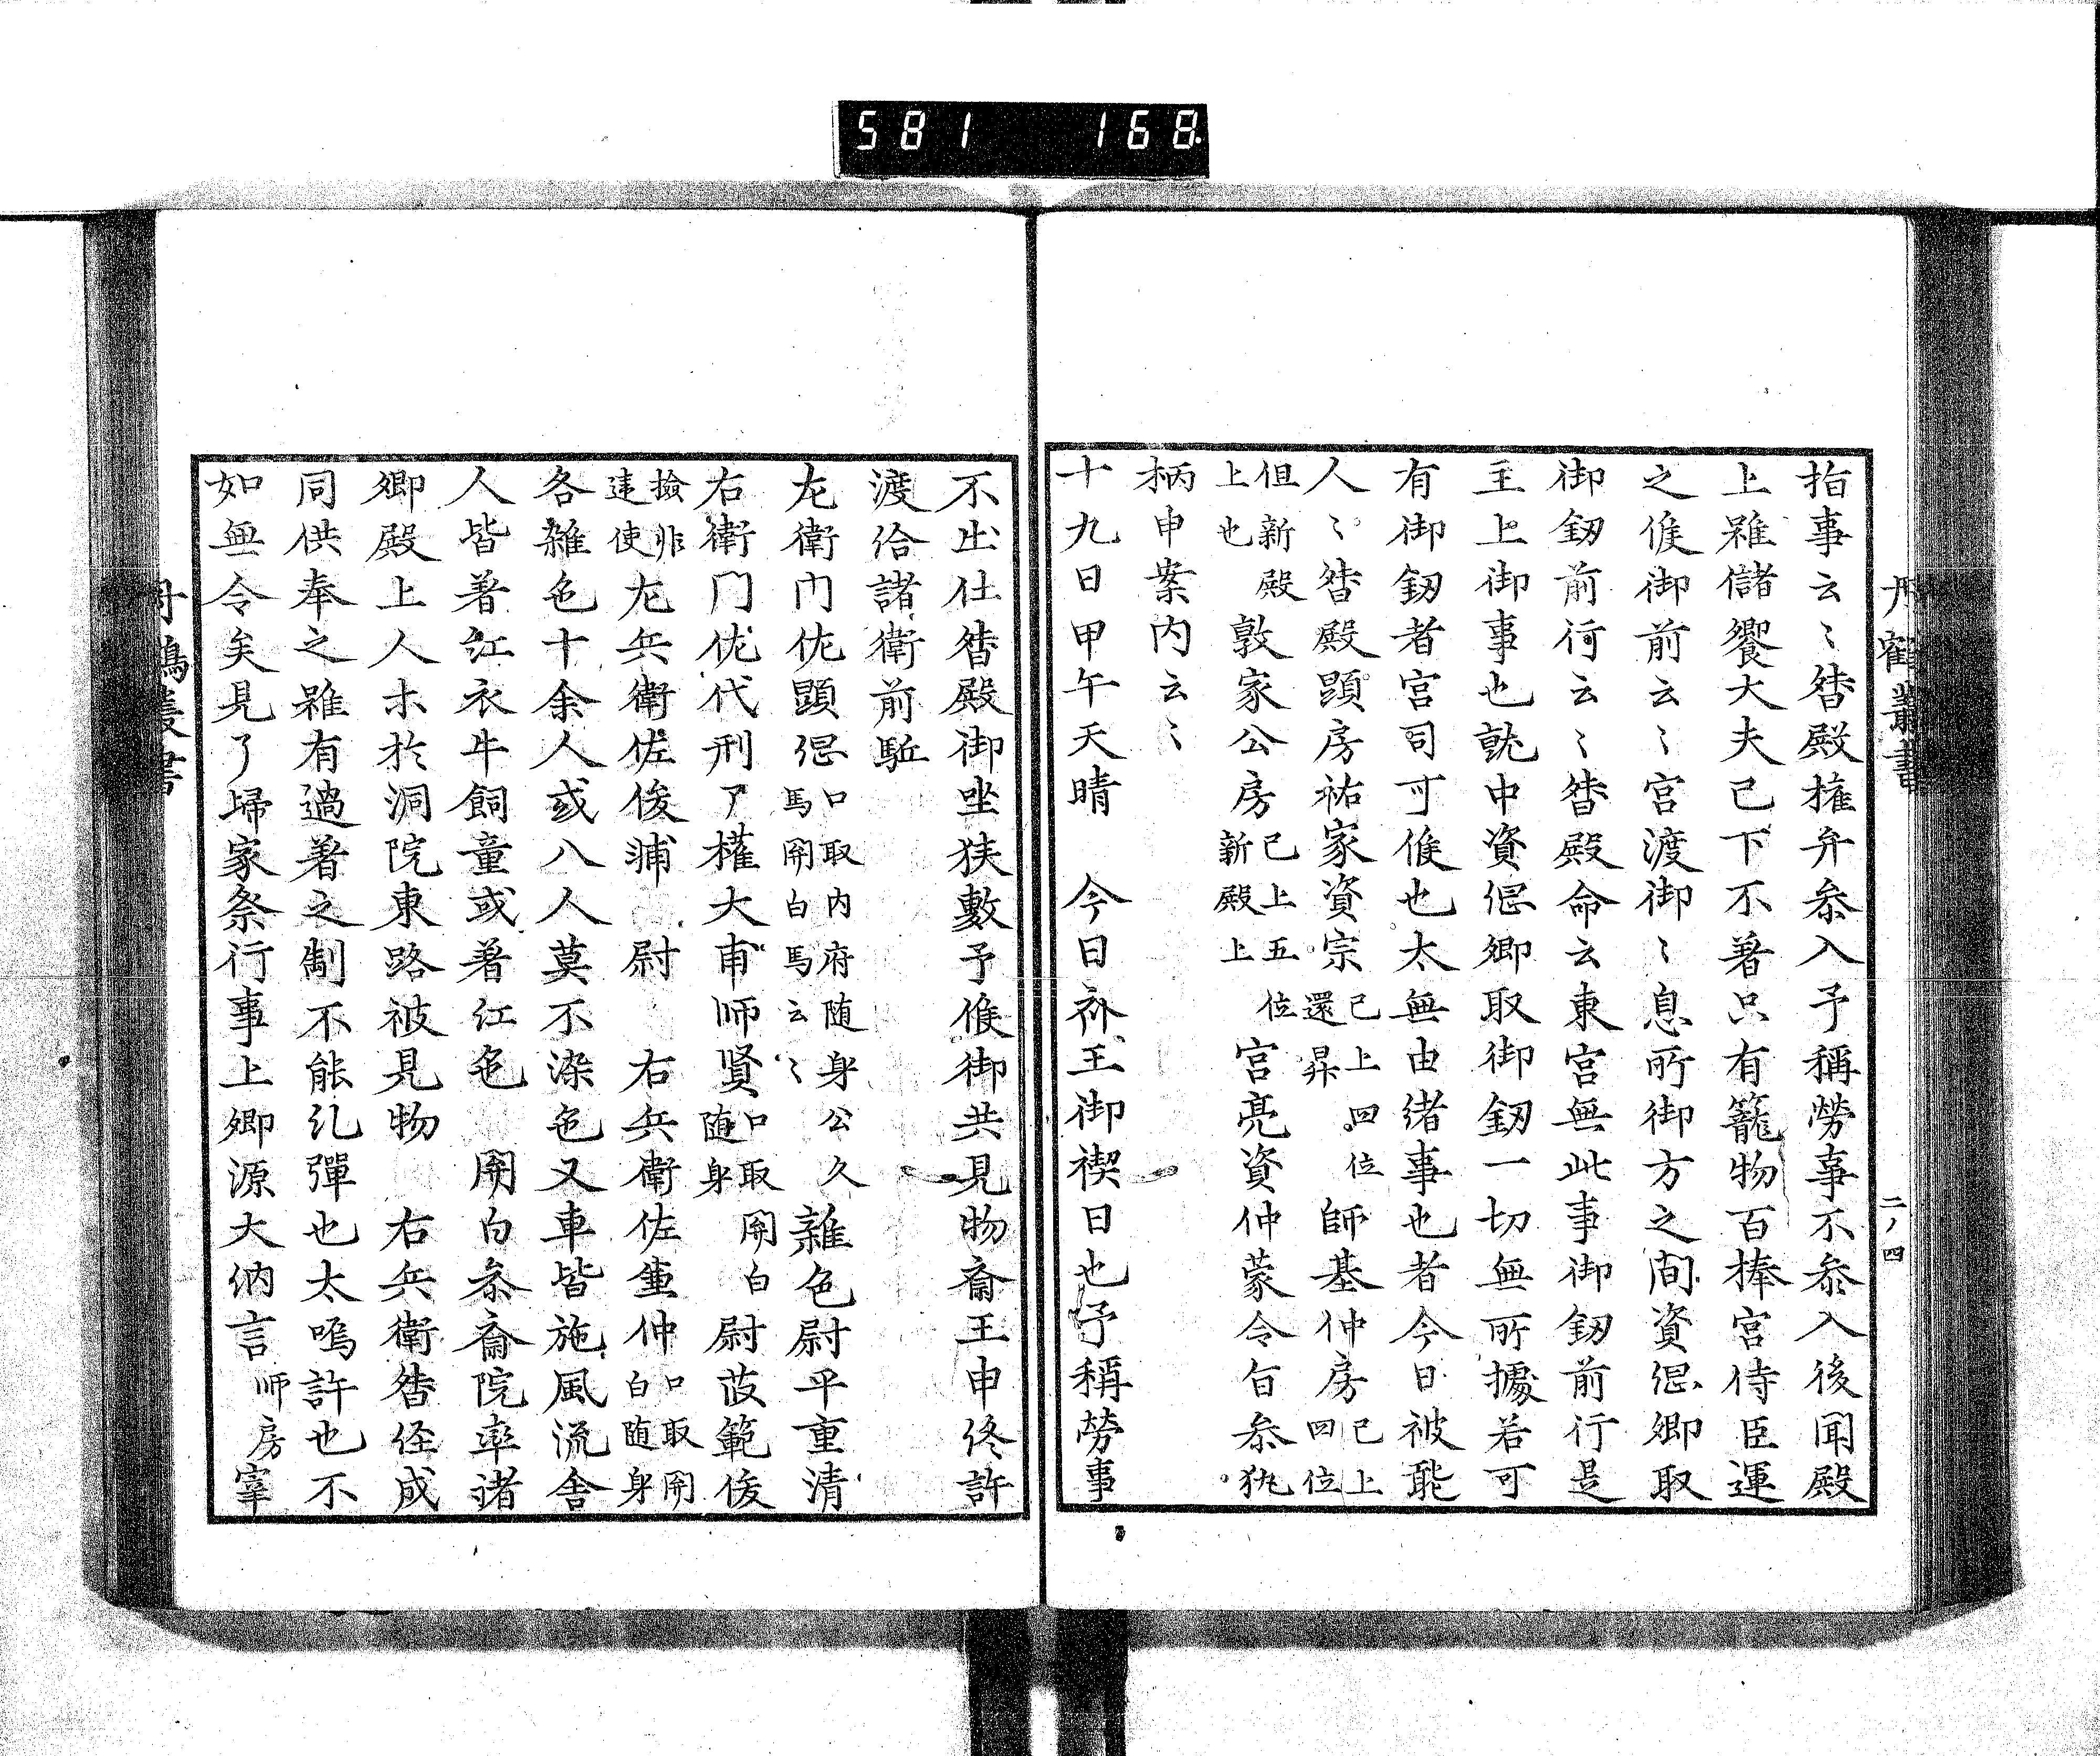 581 168
丹鶴叢書
二ノ四
指事云〻昝殿権弁叅入予稱勞事不叅入後聞殿
上雖儲饗大夫已下不著只有籠物百捧宮侍臣運
之候御前云〻宮渡御〻息所御方之間資俋卿取
御釼前行云〻昝殿命云東宮無此事御釼前行是
主上御事也就中資俋卿取御釼一切無所據若可
有御釼者宮司可候也太無由緒事也者今日被聴
人〻昝殿顕房祐家資宗已上四位還昇師基仲房已上四位
但新殿上也敦家公房已上五位新殿上宮亮資仲蒙令旨叅執
柄申案内云〻
十九日甲午天晴 今日祢王御禊日也予稱勞事
不出仕昝殿御坐狭敷予候御共見物齋王申終許
渡給諸衛前駈
左衛门佐顕俋口取内府随身公久馬関白馬云〻雜色尉平重清
右衛门佐代刑了権大甫师賢口取関白随身尉茂範俊
撿非違使左兵衛佐俊輔 尉 右兵衛佐重仲口取関白随身
各雜色十余人或八人莫不染色又車皆施風流舎
人皆著红衣牛飼童或著红色 関白叅齋院率诸
卿殿上人木於洞院東路被見物 右兵衛昝经成
同供奉之雖有過著之制不能糺彈也太嗚許也不
如無令矣見了帰家祭行事上卿源大納言师房宰
丹鶴叢書